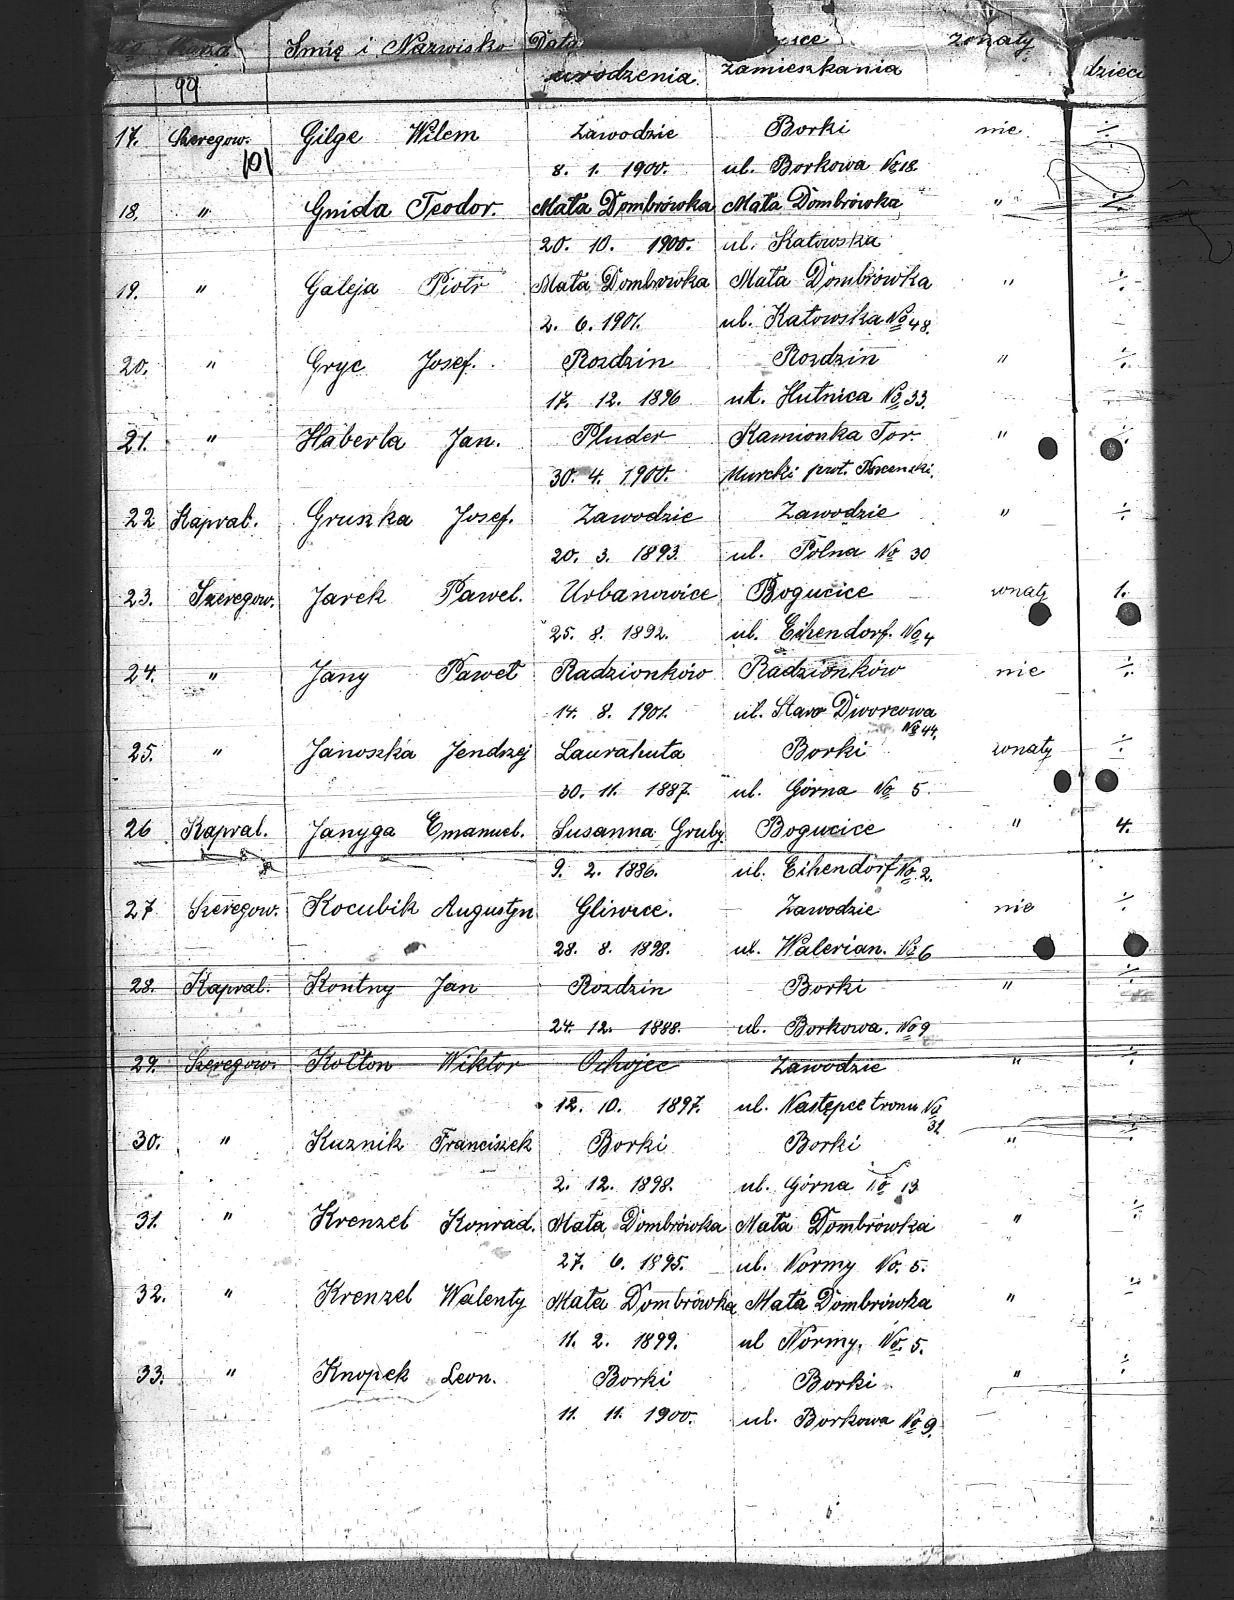 Imię i Nazwisko Data zonaty
urodzenia. zamieszkania dzieci
99
17. Szeregow. Gilge Wilem Zawodzie Borki nie ÷
101 8. 1. 1900. ul. Borkowa No 18.
18. " Gnida Teodor. Mała Dombrówka Mała Dombrówka " ÷
20. 10. 1900. ul. Katowska
19. " Galeja Piotr Mała Dombrówka Mała Dombrówka " ÷
2. 6. 1901. ul. Katowska No 48.
20. " Gryc Josef. Rozdzin Rozdzin " ÷
17. 12. 1896 ul. Hutnica No 33.
21. " Haberla Jan. Pluder Kamionka Tor. " ÷
30. 4. 1900. Murcki
22 Kapral. Gruszka Josef. Zawodzie Zawodzie " ÷
20. 3. 1893. ul. Polna No 30
23. Szeregow. Jarek Pawel. Urbanowice Bogucice zonaty 1.
25. 8. 1892. ul. Eihendorf. No 4
24. " Jany Paweł Radzionków Radzionków nie ÷
14. 8. 1901. ul. Staro Dworcowa
No 44.
25. " Janoszka Jendrzej Laurahuta Borki zonaty ÷
30. 11. 1887. ul. Górna No 5.
26 Kapral. Janyga Emanuel. Susanna Gruby. Bogucice " 4.
9. 2. 1886. ul. Eihendorf No 2.
27 Szeregow. Kocubik Augustyn Gliwice. Zawodzie nie ÷
28. 8. 1898. ul. Walerian. No 6
28. Kapral. Kontny Jan Rozdzin Borki " ÷
24. 12. 1888. ul. Borkowa. No 9
29. Szeregow. Kołton Wiktor Ochojec Zawodzie " ÷
12. 10. 1897. ul. Następce tronu No
31
30. " Kuznik Franciszek Borki Borki " ÷
2. 12. 1898. ul. Górna No 13
31. " Krenzel Konrad. Mała Dombrówka Mała Dombrówka " ÷
27. 6. 1895. ul. Normy No. 5.
32. " Krenzel Walenty Mała Dombrówka Mała Dombrówka " ÷
11. 2. 1899. ul Normy, No. 5.
33. " Knopek Leon. Borki Borki " ÷
11. 11. 1900. ul. Borkowa No 9.